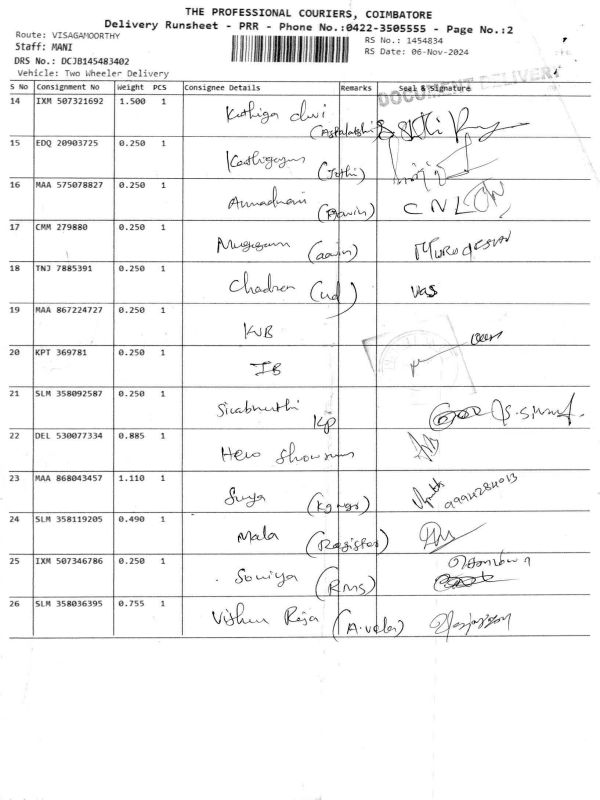 THE PROFESSIONAL COURIERS, COIMBATORE
Delivery Runsheet - PRR - Phone No.:0422-3505555 - Page No.:2
Route: VISAGAMOORTHY
Staff: MANI
DRS No.: DCJB145483402
Vehicle: Two Wheeler Delivery
RS No.: 1454834
RS Date: 06-Nov-2024
DOCUMENT DELIVERY
S No Consignment No Weight PCS Consignee Details Remarks Seal & Signature
14 IXM 507321692 1.500 1 Kathiga devi
15 EDQ 20903725 0.250 1 (Jothi)
16 MAA 575078827 0.250 1 CNL
17 CMM 279880 0.250 1 Mugugan (aavin) MURUGESAN
18 TNJ 7885391 0.250 1 Chadran (ud) vas
19 MAA 867224727 0.250 1 KVB
20 KPT 369781 0.250 1 IB
21 SLM 358092587 0.250 1 Kp
22 DEL 530077334 0.885 1 Hero Showroom
23 MAA 868043457 1.110 1 Suya
24 SLM 358119205 0.490 1 Mala (Register)
25 IXM 507346786 0.250 1 Soniya (RMS)
26 SLM 358036395 0.755 1 Vishnu Raja (A.velar)